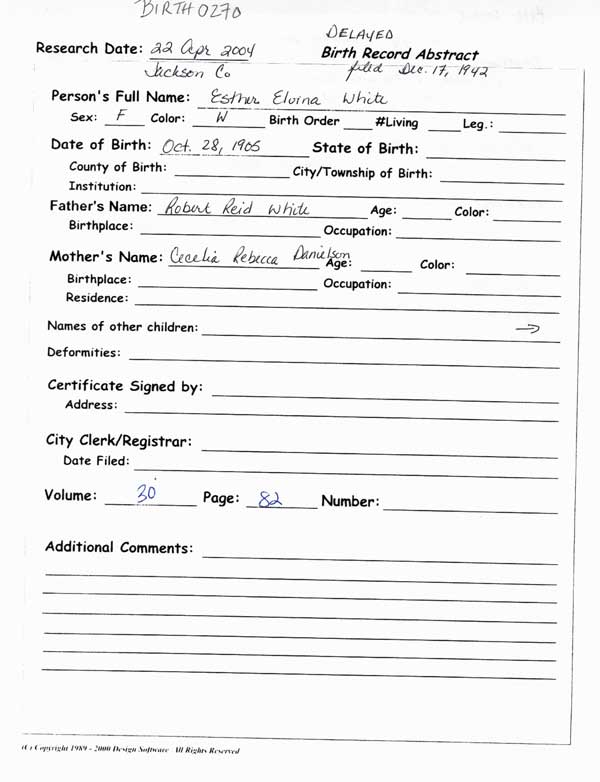 BIRTH0270
DELAYED
Research Date: 22 Apr 2004 Birth Record Abstract
Jackson Co filed Dec. 17, 1942
Person's Full Name: Esther Elvina White
Sex: F Color: W Birth Order #Living Leg.:
Date of Birth: Oct. 28, 1905 State of Birth:
County of Birth: City/Township of Birth:
Institution:
Father's Name: Robert Reid White Age: Color:
Birthplace: Occupation:
Mother's Name: Cecelia Rebecca Danielson Age: Color:
Birthplace: Occupation:
Residence:
Names of other children: →
Deformities:
Certificate Signed by:
Address:
City Clerk/Registrar:
Date Filed:
Volume: 30 Page: 82 Number:
Additional Comments:
(C) Copyright 1989 - 2000 Design Software All Rights Reserved